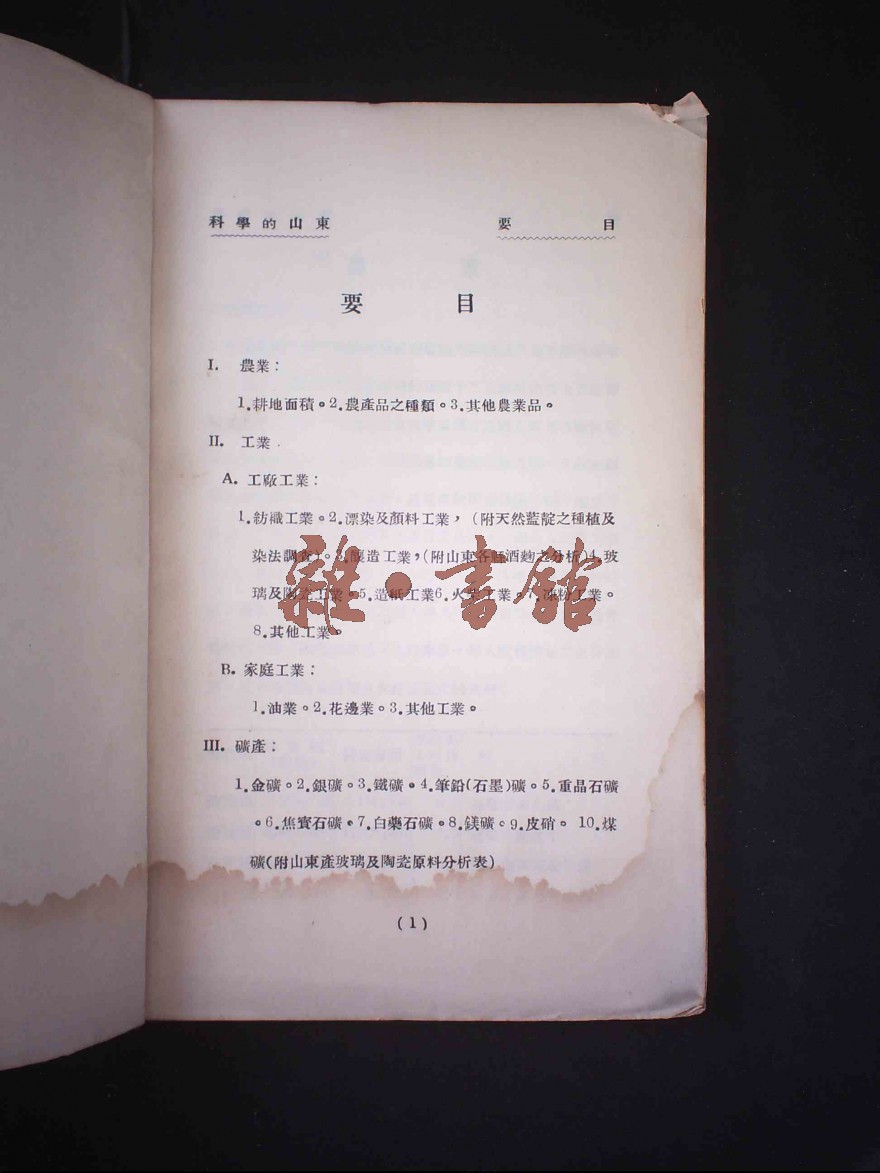 科學的山東 要目
要目
I. 農業：
1.耕地面積。2.農產品之種類。3.其他農業品。
II. 工業
A. 工廠工業：
1.紡織工業。2.漂染及顏料工業，(附天然藍靛之種植及
染法調查)。3.釀造工業，(附山東各縣酒麯之分析)4.玻
璃及陶瓷工業。5.造紙工業6.火柴工業。7.凍粉工業。
8.其他工業。
B. 家庭工業：
1.油業。2.花邊業。3.其他工業。
III. 礦產：
1.金礦。2.銀礦。3.鐵礦。4.筆鉛(石墨)礦。5.重晶石礦
。6.焦寶石礦。7.白藥石礦。8.鎂礦。9.皮硝。10.煤
礦(附山東產玻璃及陶瓷原料分析表)
(1)
雜·書館